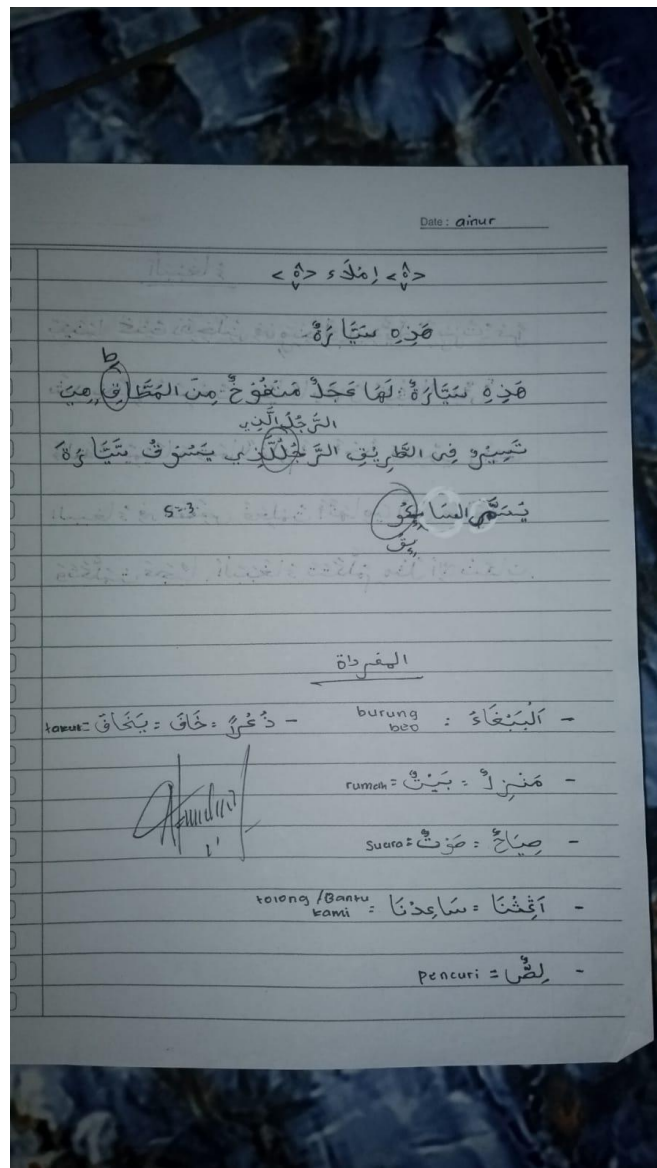 Date : ainur
إملاء
هَذِهِ سَيَّارَةٌ.
ط
هَذِهِ سَيَّارَةٌ لَهَا عَجَلٌ مَنْفُوْخٌ مِنَ المَطَّاقِ هِيَ
الرَّجُلُ الَّذِي
تَسِيْرُ فِى الطَّرِيْقِ الرَّجُلُلَّذِي يَسُوْقُ سَيَّارَةً
يُسَمَّى السَا
ئِقُ
S=3
المفرداة
- اَلْبَبْغَاءُ : burung beo
- ذُعْرًا = خَافَ = يَخَافُ = takut
- مَنْزِلٌ = بَيْتٌ = rumah
- صِيَاحٌ = صَوْتٌ = Suara
- اَغِثْنَا = سَاعِدْنَا = tolong / Bantu kami
- لِصٌّ = pencuri